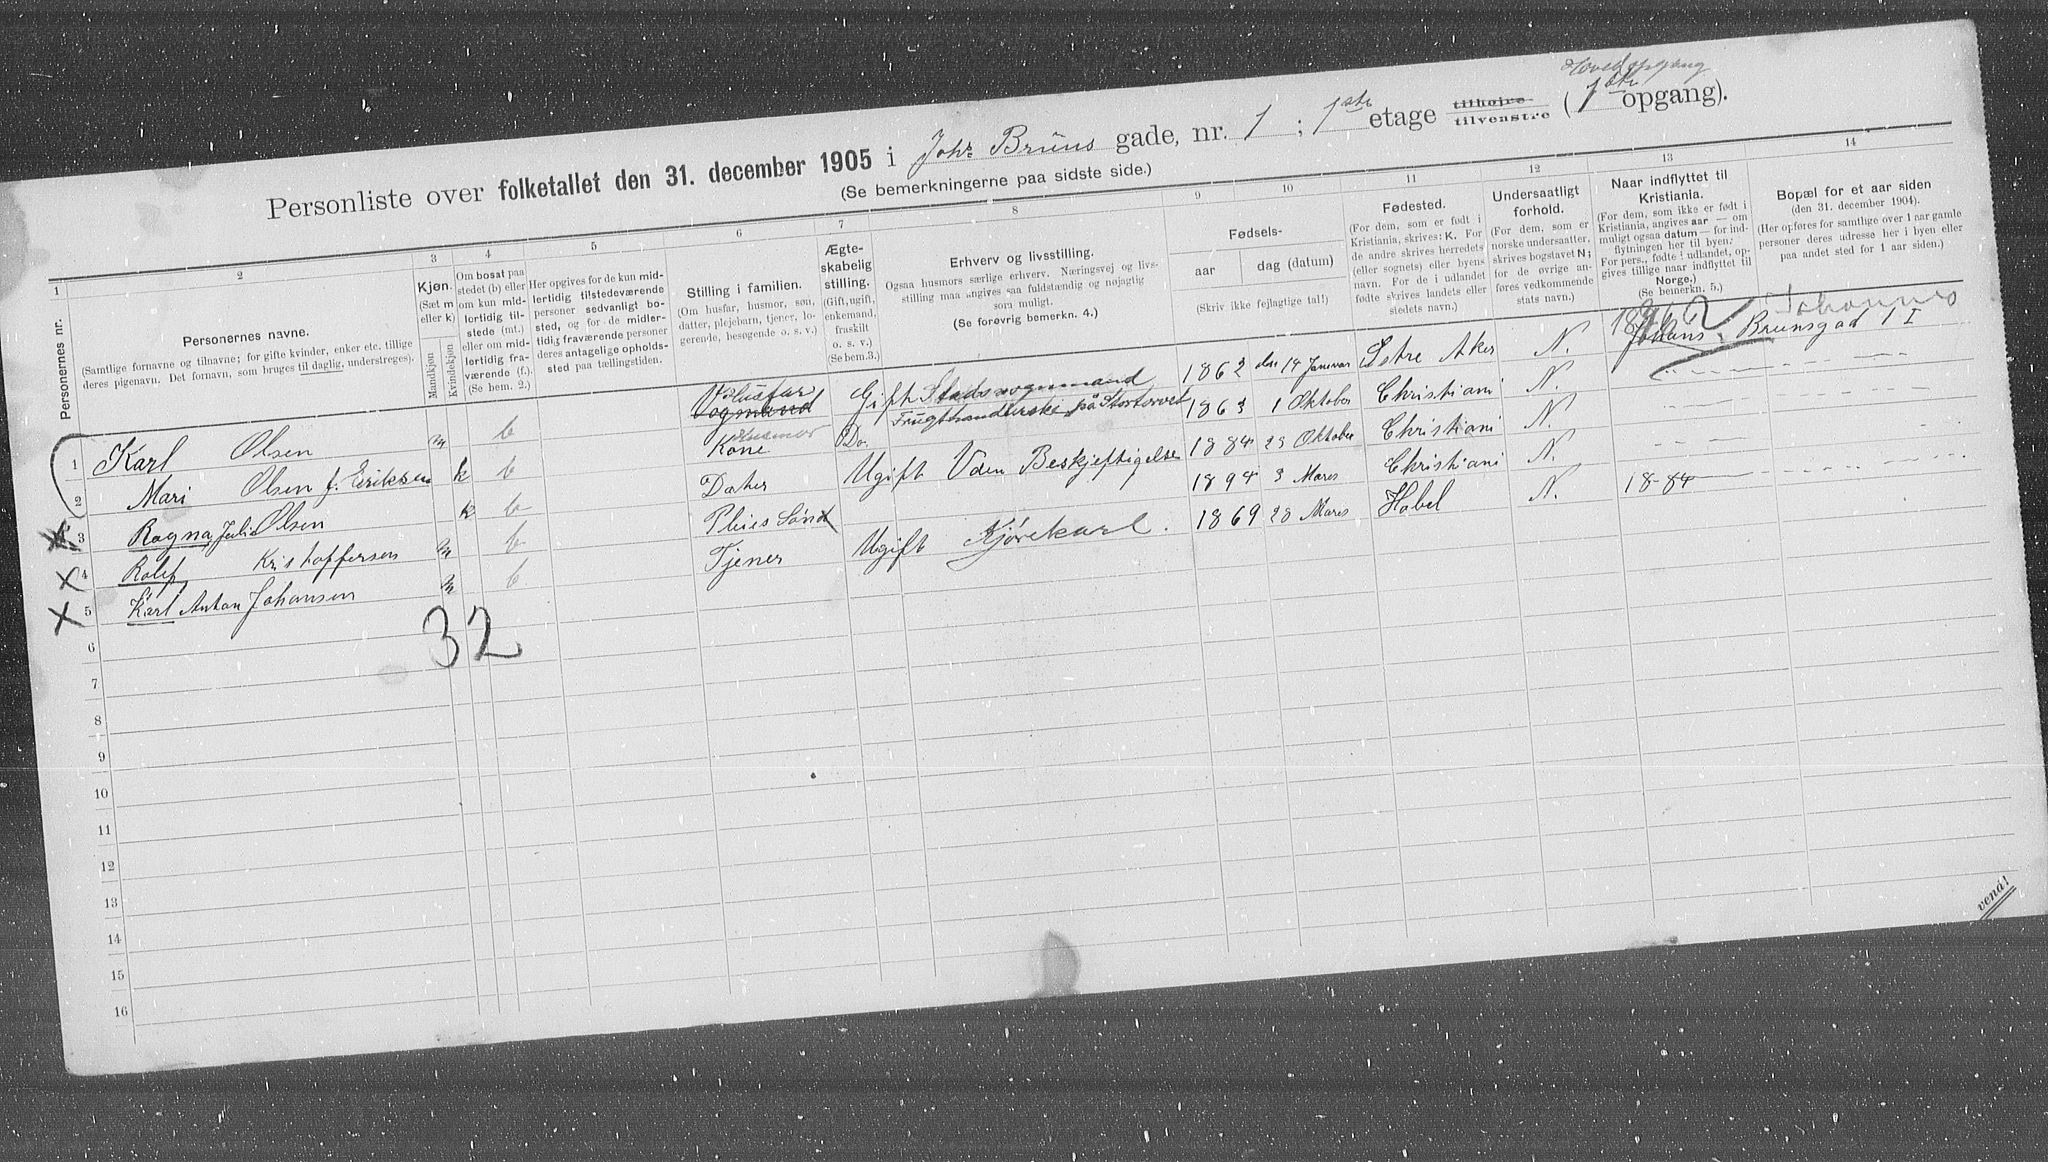 Hovedopgang
Personliste over folketallet den 31. december 1905 i Johs Bruns gade, nr. 1 ; 1ste etage tilhøjre tilvenstre ( 1ste opgang).
(Se bemerkningerne paa sidste side.)
1 2 3 4 5 6 7 8 9 10 11 12 13 14
Personernes nr.
Personernes navne.
(Samtlige fornavne og tilnavne; for gifte kvinder, enker etc. tillige
deres pigenavn. Det fornavn, som bruges til daglig, understreges).
Kjøn.
(Sæt m
eller k)
Mandkjøn
Kvindekjøn
Om bosat paa
stedet (b) eller
om kun mid-
lertidig til-
stede (mt.)
eller om mid-
lertidig fra-
værende (f.)
(Se bem. 2.)
Her opgives for de kun mid-
lertidig tilstedeværende
personer sedvanligt bo-
sted, og for de midler-
tidig fraværende personer
deres antagelige opholds-
sted paa tællingstiden.
Stilling i familien.
(Om husfar, husmor, søn,
datter, plejebarn, tjener, lo-
gerende, besøgende o. s. v.)
Ægte-
skabelig
stilling.
(Gift, ugift,
enkemand,
fraskilt
o. s. v.)
(Se bem.3.)
Erhverv og livsstilling.
Ogsaa husmors særlige erhverv. Næringsvej og livs-
stilling maa angives saa fuldstændig og nøjagtig
som muligt.
(Se forøvrig bemerkn. 4.)
Fødsels-
aar dag (datum)
(Skriv ikke fejlagtige tal!)
Fødested.
(For dem, som er født i
Kristiania, skrives: K. For
de andre skrives herredets
(eller sognets) eller byens
navn. For de i udlandet
fødte skrives landets eller
stedets navn.)
Undersaatligt
forhold.
(For dem, som er
norske undersaatter,
skrives bogstavet N;
for de øvrige an-
føres vedkommende
stats navn.)
Naar indflyttet til
Kristiania.
(For dem, som ikke er født i
Kristiania, angives aar — om
muligt ogsaa datum — for ind-
flytningen her til byen.
For pers., fødte i udlandet, op-
gives tillige naar indflyttet til
Norge.)
(Se bemerkn. 5.)
Bopæl for et aar siden
(den 31. december 1904).
(Her opføres for samtlige over 1 aar gamle
personer deres adresse her i byen eller
paa andet sted for 1 aar siden.)
1 Karl Olsen m b Husfar Vogmand Gift Stadsvogmand 1862 den 14 Januar Østre Aker N. Johans. Brunsgad 1 I Johannes
2 Mari Olsen f. Eriksen k b Kone Husmor Do. Frugthandlerske på Stortorvet 1863 1 Oktober Christiani N.
3 Ragna Juli Olsen k b Dater Ugift Uden Beskjeftigelse 1884 23 Oktober Christiani N.
4 Rolf Kristoffersen m b Pleies Sønd 1894 3 Mares Christiani N.
5 Karl Anton Johansen m b Tjener Ugift Kjørekarl. 1869 28 Mares Hobel N. 1884
32
6
7
8
9
10
11
12
13
14
15
16
vend!